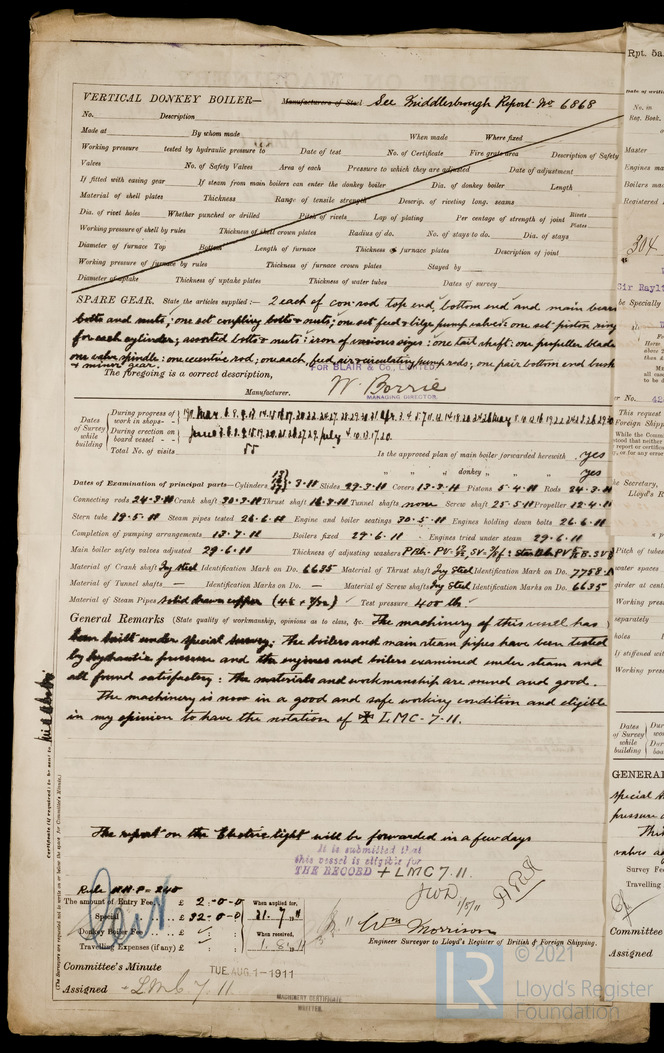 VERTICAL DONKEY BOILER— Manufacturers of Steel See Middlesbrough Report No 6868
No. Description
Made at By whom made When made Where fixed
Working pressure tested by hydraulic pressure to Date of test No. of Certificate Fire grate area Description of Safety
Valves No. of Safety Valves Area of each Pressure to which they are adjusted Date of adjustment
If fitted with easing gear If steam from main boilers can enter the donkey boiler Dia. of donkey boiler Length
Material of shell plates Thickness Range of tensile strength Descrip. of riveting long. seams
Dia. of rivet holes Whether punched or drilled Pitch of rivets Lap of plating Per centage of strength of joint Rivets Plates
Working pressure of shell by rules Thickness of shell crown plates Radius of do. No. of stays to do. Dia. of stays
Diameter of furnace Top Bottom Length of furnace Thickness of furnace plates Description of joint
Working pressure of furnace by rules Thickness of furnace crown plates Stayed by
Diameter of uptake Thickness of uptake plates Thickness of water tubes Dates of survey
SPARE GEAR. State the articles supplied:— 2 each of con-rod top end, bottom end and main bearing
bolts and nuts; one set coupling bolts & nuts; one set feed & bilge pump valves: one set piston ring
for each cylinder; assorted bolts & nuts: iron of various sizes: one tail shaft: one propeller blade
one valve spindle: one eccentric rod; one each, feed, air & circulating pump rods; one pair bottom end bush
& minor gear.
The foregoing is a correct description,
FOR BLAIR & Co., LIMITED
W. Borrie
Manufacturer. MANAGING DIRECTOR
Dates of Survey while building
During progress of work in shops--
During erection on board vessel---
Total No. of visits 55
Is the approved plan of main boiler forwarded herewith yes
" " " donkey " " " yes
Dates of Examination of principal parts—Cylinders Slides 29.3.11 Covers 13.3.11 Pistons 5.4.11 Rods 24.3.11
Connecting rods 24.3.11 Crank shaft 30.3.11 Thrust shaft 16.3.11 Tunnel shafts none Screw shaft 25.5.11 Propeller 12.4.11
Stern tube 19.5.11 Steam pipes tested 26.6.11 Engine and boiler seatings 30.5.11 Engines holding down bolts 26.6.11
Completion of pumping arrangements 13.7.11 Boilers fixed 29.6.11 Engines tried under steam 29.6.11
Main boiler safety valves adjusted 29.6.11 Thickness of adjusting washers
Material of Crank shaft Ing steel Identification Mark on Do. 6635 Material of Thrust shaft Ing Steel Identification Mark on Do. 7758
Material of Tunnel shafts — Identification Marks on Do. — Material of Screw shafts Ing Steel Identification Marks on Do. 6635
Material of Steam Pipes solid drawn copper Test pressure 400 lb
General Remarks (State quality of workmanship, opinions as to class, &c. The machinery of this vessel has
been built under special survey: the boilers and main steam pipes have been tested
by hydraulic pressure and the engines and boilers examined under steam and
all found satisfactory: the materials and workmanship are sound and good.
The machinery is now in a good and safe working condition and eligible
in my opinion to have the notation of ✠ LMC-7-11.
Certificate (if required) to be sent to
(The Surveyors are requested not to write on or below the space for Committee's Minute.)
The report on the Electric light will be forwarded in a few days
It is submitted that
this vessel is eligible for
THE RECORD + LMC 7.11.
JWD
1/8/11
Rule N.H.P = 240
The amount of Entry Fee £ 2-0-0 When applied for,
Special £ 32-0-0 21.7.11
Donkey Boiler Fee £ When received,
Travelling Expenses (if any) £ 1.8.11
Wm Morrison
Engineer Surveyor to Lloyd's Register of British & Foreign Shipping.
Committee's Minute TUE. AUG. 1-1911
Assigned + LMC 7.11
MACHINERY CERTIFICATE
WRITTEN
© 2021
Lloyd's Register
Foundation
LR
Rpt. 5a
No. in
Reg. Book.
Master
Engines ma
Boilers ma
Registered
304
Sir Rayl
be Specially
This request
Foreign Shipp
the Secretary,
Lloyd's R
Pitch of tubes
water spaces
girder at cent
Working pres
separately
holes
If stiffened wi
Working pres
Dates of Survey while building
GENERA
special s
pressure a
valves a
Survey Fe
Travelling
Committee
Assigned